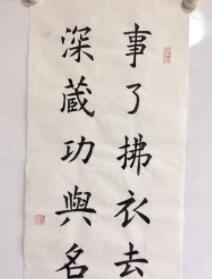 事了拂衣去
深藏功與名